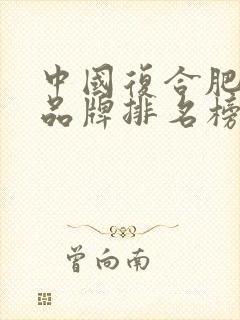 中國復合肥
品牌排名榜
曾向南